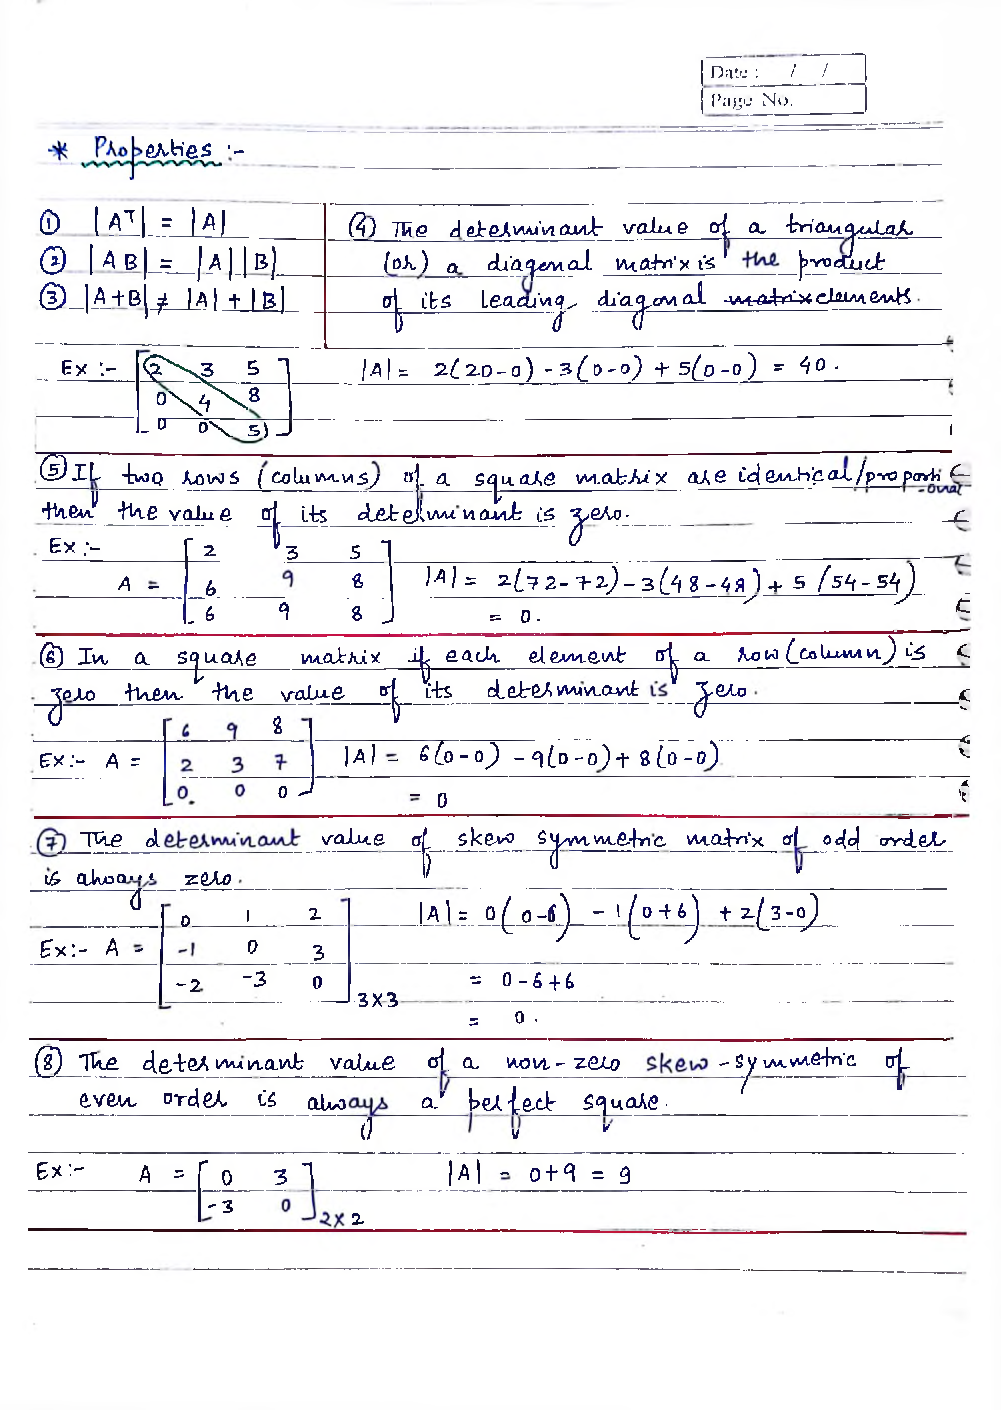 Date : / /
Page No.
* Properties :-
① |Aᵀ| = |A|
② |AB| = |A||B|
③ |A+B| ≠ |A| + |B|
④ The determinant value of a triangular
(or) a diagonal matrix is the product
of its leading diagonal ~~matrix~~ elements.
Ex :- [2 3 5
0 4 8
0 0 5] |A| = 2(20-0) - 3(0-0) + 5(0-0) = 40.
⑤ If two rows (columns) of a square matrix are identical/proportional
then the value of its determinant is zero.
Ex :-
A = [2 3 5
6 9 8
6 9 8] |A| = 2(72-72) - 3(48-48) + 5(54-54)
= 0.
⑥ In a square matrix if each element of a row (column) is
zero then the value of its determinant is zero.
Ex :- A = [6 9 8
2 3 7
0 0 0] |A| = 6(0-0) - 9(0-0) + 8(0-0)
= 0
⑦ The determinant value of skew symmetric matrix of odd order
is always zero.
Ex :- A = [0 1 2
-1 0 3
-2 -3 0] 3X3 |A| = 0(0-6) - 1(0+6) + 2(3-0)
= 0-6+6
= 0.
⑧ The determinant value of a non-zero skew-symmetric of
even order is always a perfect square.
Ex :- A = [0 3
-3 0] 2X2 |A| = 0+9 = 9